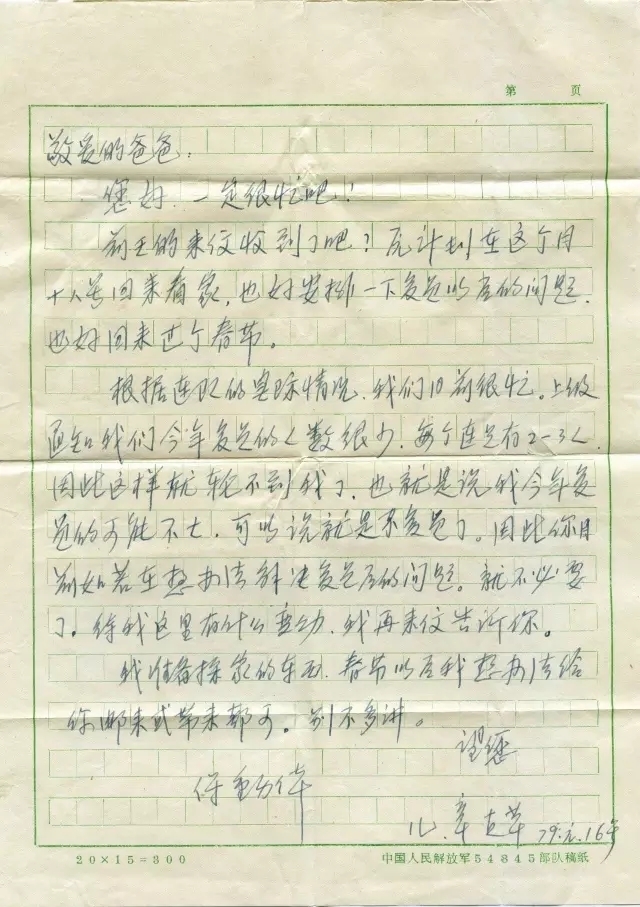 第 页
敬爱的爸爸:
您好.一定很忙吧!
前王的来信收到了吧?原计划在这个月
十八号回来看家,也好安排一下复员以后的问题.
也好回来过个春节。
根据连队的实际情况.我们目前很忙.上级
通知我们今年复员的人数很少.每个连只有2-3人.
因此这样就轮不到我了.也就是说我今年复
员的可能不大.可以说就是不复员了。因此你目
前如若在想办法解决复员后的问题.就不必要
了.待我这里有什么变动.我再来信告诉你。
我准备探家的东西.春节以后我想办法给
你邮来或带来都可。别不多讲。
望您
保重身体
儿.章 草 79.元.16午
20×15=300
中国人民解放军54845部队稿纸